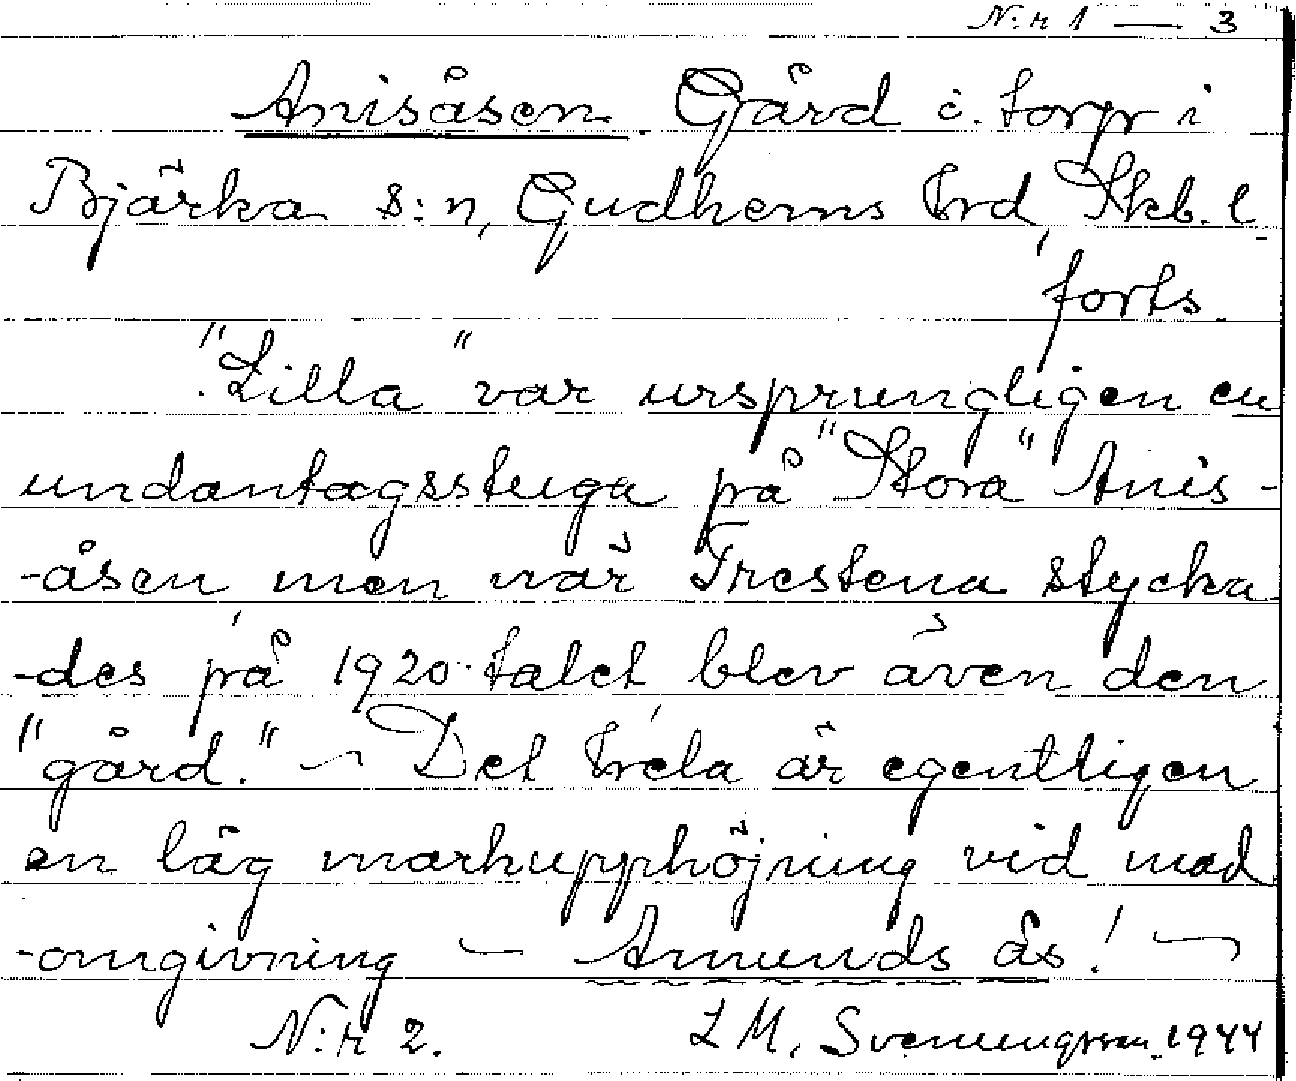 N:r 1 — 3
Anisåsen. Gård o. torp i
Bjärka s:n, Gudhems hrd, Skb. l.
forts.
"Lilla" var ursprungligen en
undantagsstuga på "Stora" Anis-
-åsen men när Trestena stycka
-des på 1920-talet blev även den
"gård." ~ Det hela är egentligen
en låg markupphöjning vid mad
-omgivning ~ Amunds ås! ~
N:r 2. L M. Svenungsson. 1944